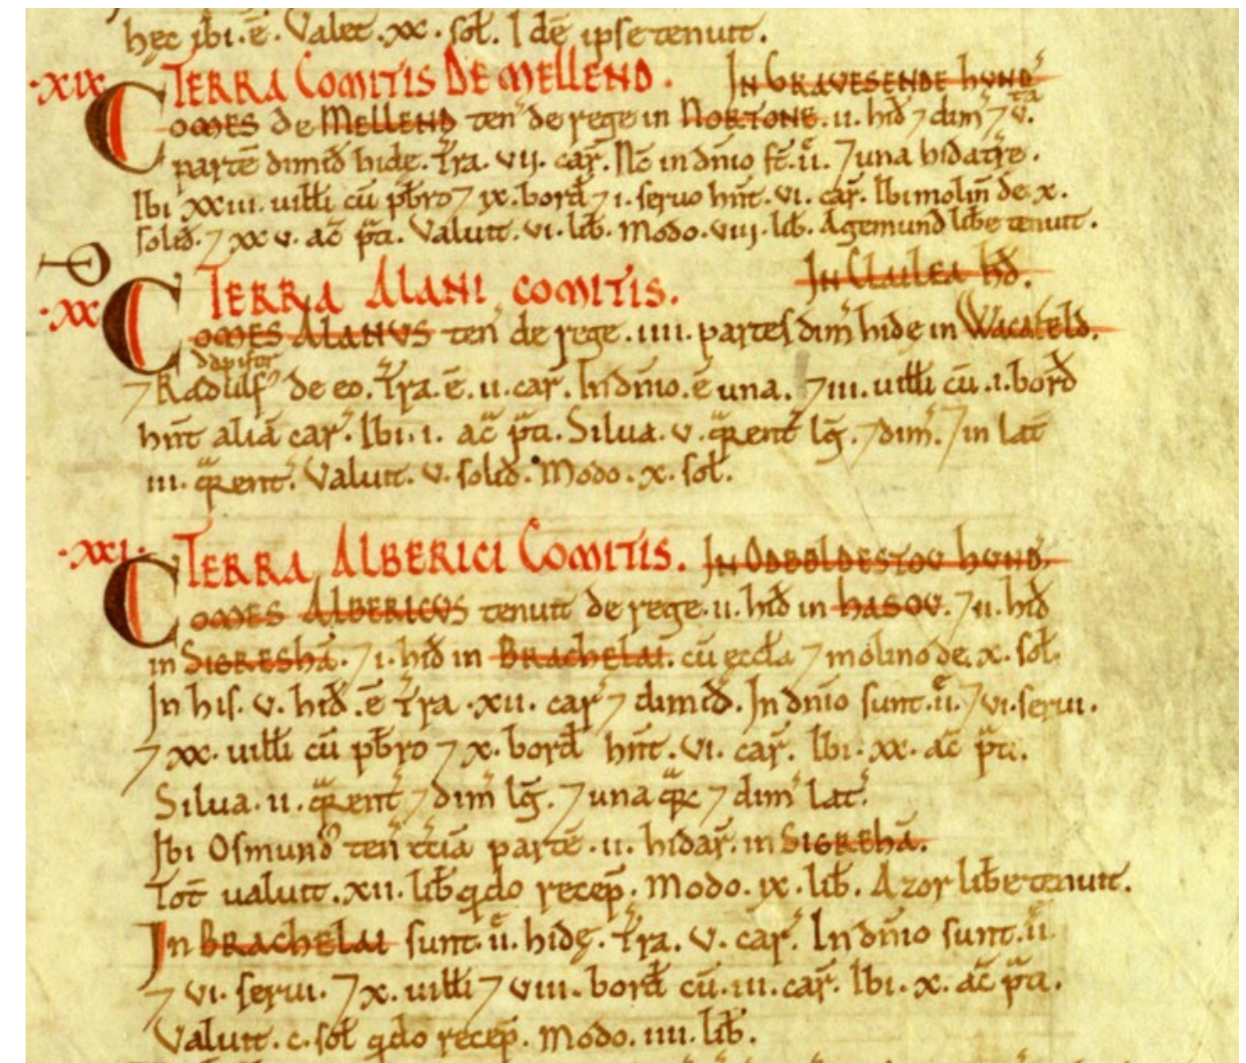 hęc ibi .ē. Valet .xx. sol̄. Idē ipse tenuit.
.XIX. TERRA COMITIS DE MELLEND. IN GRAVESENDE HVND'
COMES de MELLEND ten' de rege in NORTONE .ii. hid̄ ⁊ dim̄ ⁊ v.ta
partē dimid̄ hidę. T̄ra .vii. car̄. Nc̄ in dn̄io st̄ .ii. ⁊ una hida t̄re.
Ibi xxiii. uilłi cū pb̄ro ⁊ ix. bord̄ ⁊ i. seruo hn̄t .vi. car̄. Ibi molin̄ de x.
solid̄. ⁊ xxv. ac̄ p̄ti. Valuit .vi. lib̄. Modo .viii. lib̄. Agemund lib̄e tenuit.
.XX. TERRA ALANI COMITIS. IN CLAILEA HD̄.
COMES ALANVS ten' de rege .iiii. partes dim̄ hidę in WACAFELD.
dapifer
⁊ Radulf' de eo. T̄ra .ē. ii. car̄. In dn̄io .ē una. ⁊ iii. uilłi cū .i. bord̄
hn̄t aliā car̄. Ibi .i. ac̄ p̄ti. Silua .v. qrent' lḡ. ⁊ dim̄. ⁊ in lat̄
iii. qrent'. Valuit .v. solid̄. Modo .x. sol̄.
.XXI. TERRA ALBERICI COMITIS. IN ODBOLDESTOV HVND'.
COMES ALBERICVS tenuit de rege .ii. hid̄ in HASOV. ⁊ ii. hid̄
in SIGRESHĀ. ⁊ i. hid̄ in BRACHELAI. cū ęccła ⁊ molino de .x. sol̄.
In his .v. hid̄ .ē t̄ra .xii. car̄ ⁊ dimid̄. In dn̄io sunt .ii. ⁊ vi. serui.
⁊ xx. uilłi cū pb̄ro ⁊ x. bord̄ hn̄t .vi. car̄. Ibi .xx. ac̄ p̄ti.
Silua .ii. qrent' ⁊ dim̄ lḡ. ⁊ una qr̄ ⁊ dim̄ lat'.
Ibi Osmund' ten' t̄ciā partē .ii. hidar̄. in SIGREHĀ.
Tot̄ ualuit .xii. lib̄ qdo recep̄. Modo .ix. lib̄. Azor lib̄e tenuit.
In BRACHELAI sunt .ii. hidę. T̄ra .v. car̄. In dn̄io sunt .ii.
⁊ vi. serui. ⁊ x. uilłi ⁊ viii. bord̄ cū .iii. car̄. Ibi .x. ac̄ p̄ti.
Valuit .c. sol̄ qdo recep̄. Modo .iiii. lib̄.